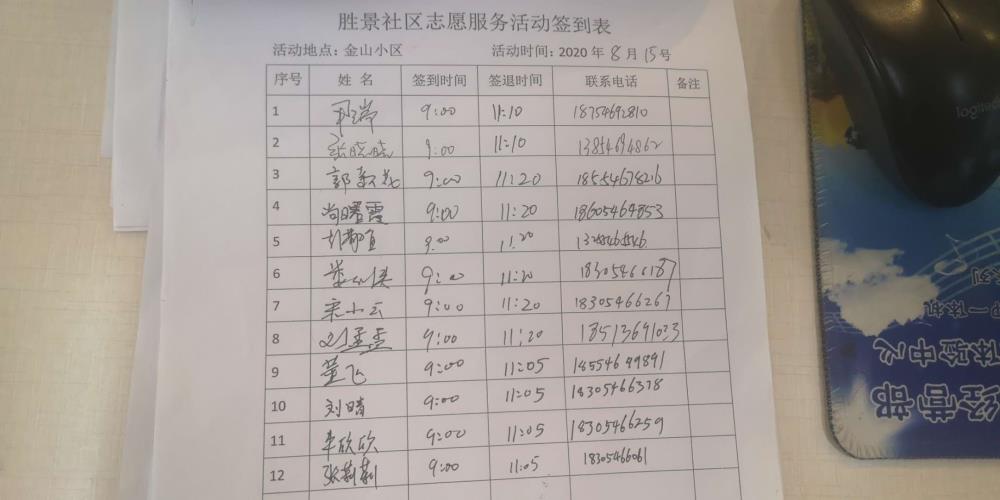 胜景社区志愿服务活动签到表
活动地点：金山小区 活动时间：2020 年 8 月 15 号
序号 姓 名 签到时间 签退时间 联系电话 备注
1 9:00 11:10 18754692810
2 张晓晓 9:00 11:10
3 郭 9:00 11:20 18554678216
4 尚曙霞 9:00 11:20 18605464853
5 9:00 11:20
6 9:00 11:20 18305466187
7 宋小云 9:00 11:20 18305466267
8 刘孟孟 9:00 11:20 18513691033
9 董飞 9:00 11:05 18554699891
10 刘晴 9:00 11:05 18305466378
11 李欣欣 9:00 11:05 18305466259
12 张莉莉 9:00 11:05 18305466061
一体机
体验中心
经营部